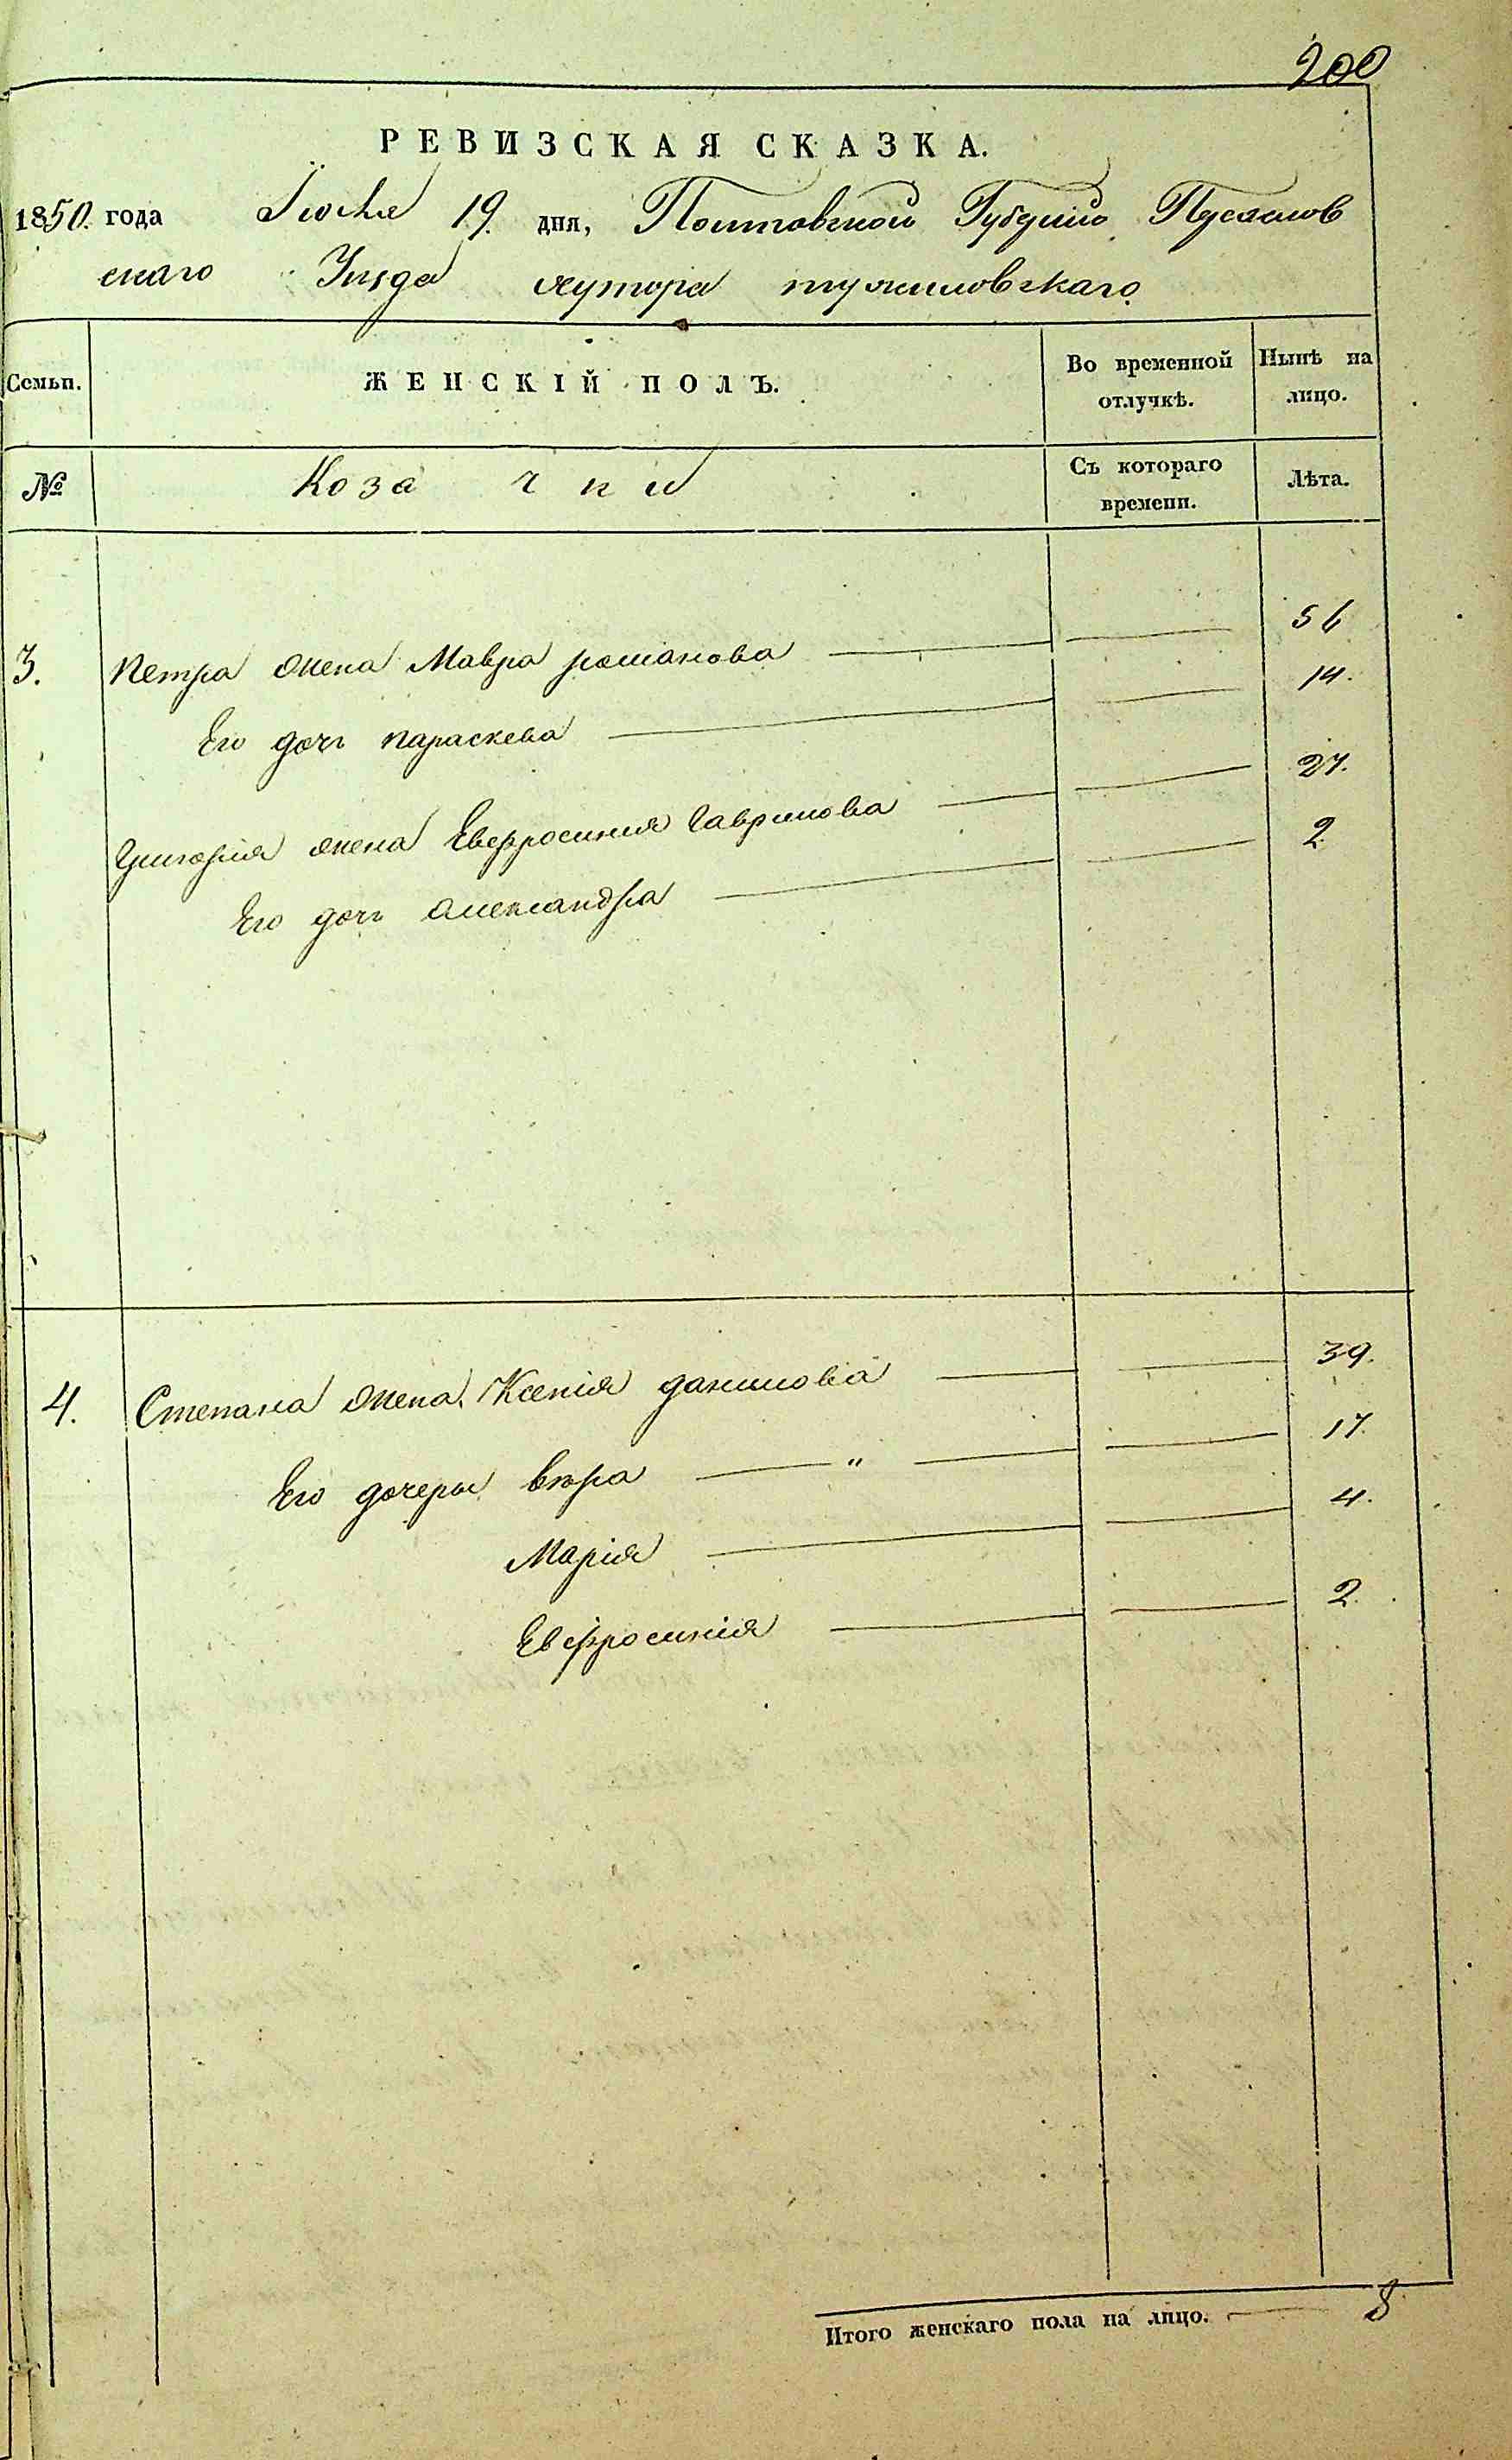 200
РЕВИЗСКАЯ СКАЗКА.
1850. года Іюня 19. дня, Полтавской Губерніи
скаго Уѣзда хутора
Семьи. ЖЕНСКІЙ ПОЛЪ. Во временной отлучкѣ. Нынѣ на лицо.
№ Коза чки Съ котораго времени. Лѣта.
3. Петра жена Мавра романова 56
Его дочь параскева 14.
Григорія жена Евфросинія Гаврилова 27.
Его дочь александра 2.
4. Степана жена Ксенія данилова 39.
Его дочеры вѣра " 17.
Марія 4.
Евфросинія 2.
Итого женскаго пола на лицо. 8